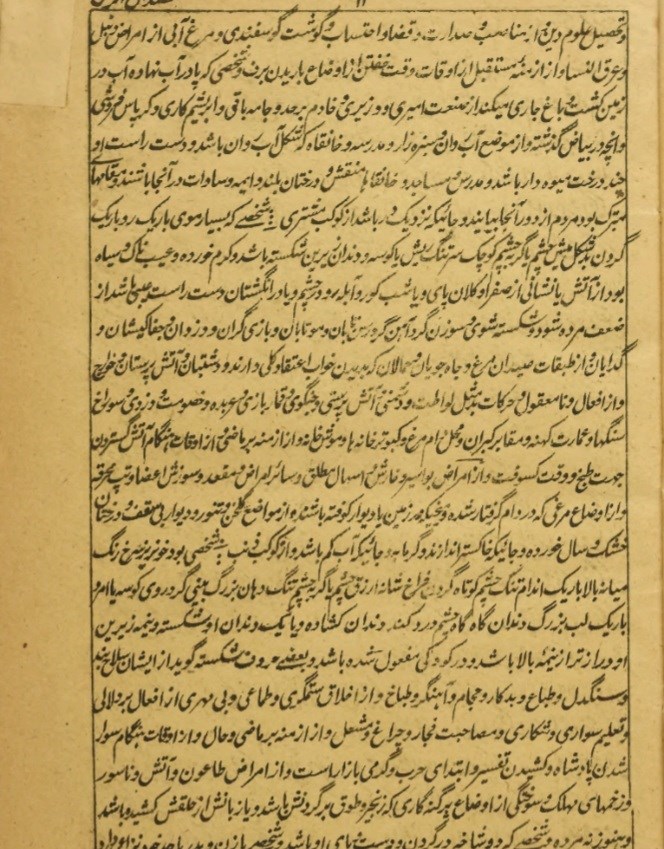 و تحصیل علوم دین و از مناصب صدارت و قضا و احتساب و گوشت گوسفندی و مرغ آبی از امراض
و عرق النسا و از ازمنه مستقبل از اوقات وقت خفتن از اوضاع باریدن برف و شخصی که پا در آب نهاده آب در
زمین کشت و باغ جاری میکند از صنعت امیری و وزیری و خادم و جامه باقی و ابریشم کاری و کرباس فروشی
و آنچه در بیاض گذشته و از موضع آب روان و سبزه زار و مدرسه و خانقاه که شکل آب روان باشد و دست راست او
چند درخت میوه دار باشد و مدرس و مساجد و خانقاه با منقش و درختان بلند و ایمه و سادات در آنجا باشند و مقامهای
متبرک بود مردم از دور آنجا بیایند و جائیکه نزدیک در باشد از کوکب مشتری شخصی که بسیار موی باریک رو باریک
گردن بد شکل میش چشم یا گربه چشم کوچک سر تنگ ریش یا کوسه و دندان زیرین شکسته باشد و کرم خورده و عیب ناک و سیاه
بود از آتش یا نشانی از صفرا و کلان پای و یا شب کور و آبله رو در چشم و یا در انگشتان دست راست عیبی باشد از
ضعف مرده شود و شکسته شوی و سوزن گر و آهن گر و نان بابان و مو تابان و بازی گران و دزدان و جفا کیشان و
گدایان و از طبقات صیدان مرغ و جاه جویان و حمالان که بدیدن خواب اعتقاد کلی دارند و دشتبان و آتش پرستان و خوارج
و از افعال و نامعقول و حرکات مثل لواطت و دشمنی آتش پرستی و جنگجوی و قمار بازی و عربده و خصومت و دزدی و سوراخ
سنگها و عمارت کهنه و مقابر گبران و محل دام مرغ و کبوتر خانه و از ازمنه بر ماضی از اوقات هنگام آتش گستردن
جهت طبخ و وقت کسوف و از امراض بواسیر و خارش و اسهال مطلق و سائر امراض مقعد و سوزش اعضا و تپ محرقه
و از اوضاع مرغی که در دام گرفتار شده و میخیکه در زمین یا دیوار کوفته باشند و از مواضع گلخن و تنور و دیوار بی سقف و درختان
خشک و سال خورده و جائیکه خاکستر اندازند و گرمابه و جائیکه آب کم باشد و از کوکب ذنب شخصی بود خونریز سرخ رنگ
میانه بالا باریک اندام تنک چشم کوتاه گردن فراخ شانه ارزق چشم یا گربه چشم تنگ دهان بزرگ بینی گرد روی کوسه یا امرد
باریک لب بزرگ دندان گاه گاه چشم درد کند و دندان کشاده و یا نیک دندان او شکسته و نیمه زیرین
او دراز تر از نیمه بالا باشد و در کودکی مفعول شده باشد و بعضے حروف شکسته گوید از ایشان سلاح بند
و سنگدل و طباع و بدکار و حجام و آهنگر و طباخ و از اخلاق ستمگری و طماعی و بی مهری از افعال بر دلالی
و تعلیم سواری و شکاری و مصاحبت فجار و چراغ و مشعل و از ازمنه بر ماضی و حال و از اوقات هنگام سوار
شدن پادشاه و کشیدن تفسیر و ابتدای حرب و گرمی بازار است و از امراض طاعون و آتش و ناسور
و زخمهای مهلک و سوختگی از اوضاع بر گنه گاری که زنجیر و طوق بر گردنش باشد و یا زبانش از حلقش کشیده باشد
و هنوز نه مرده و شخصی که دو شاخه در گردن و دست